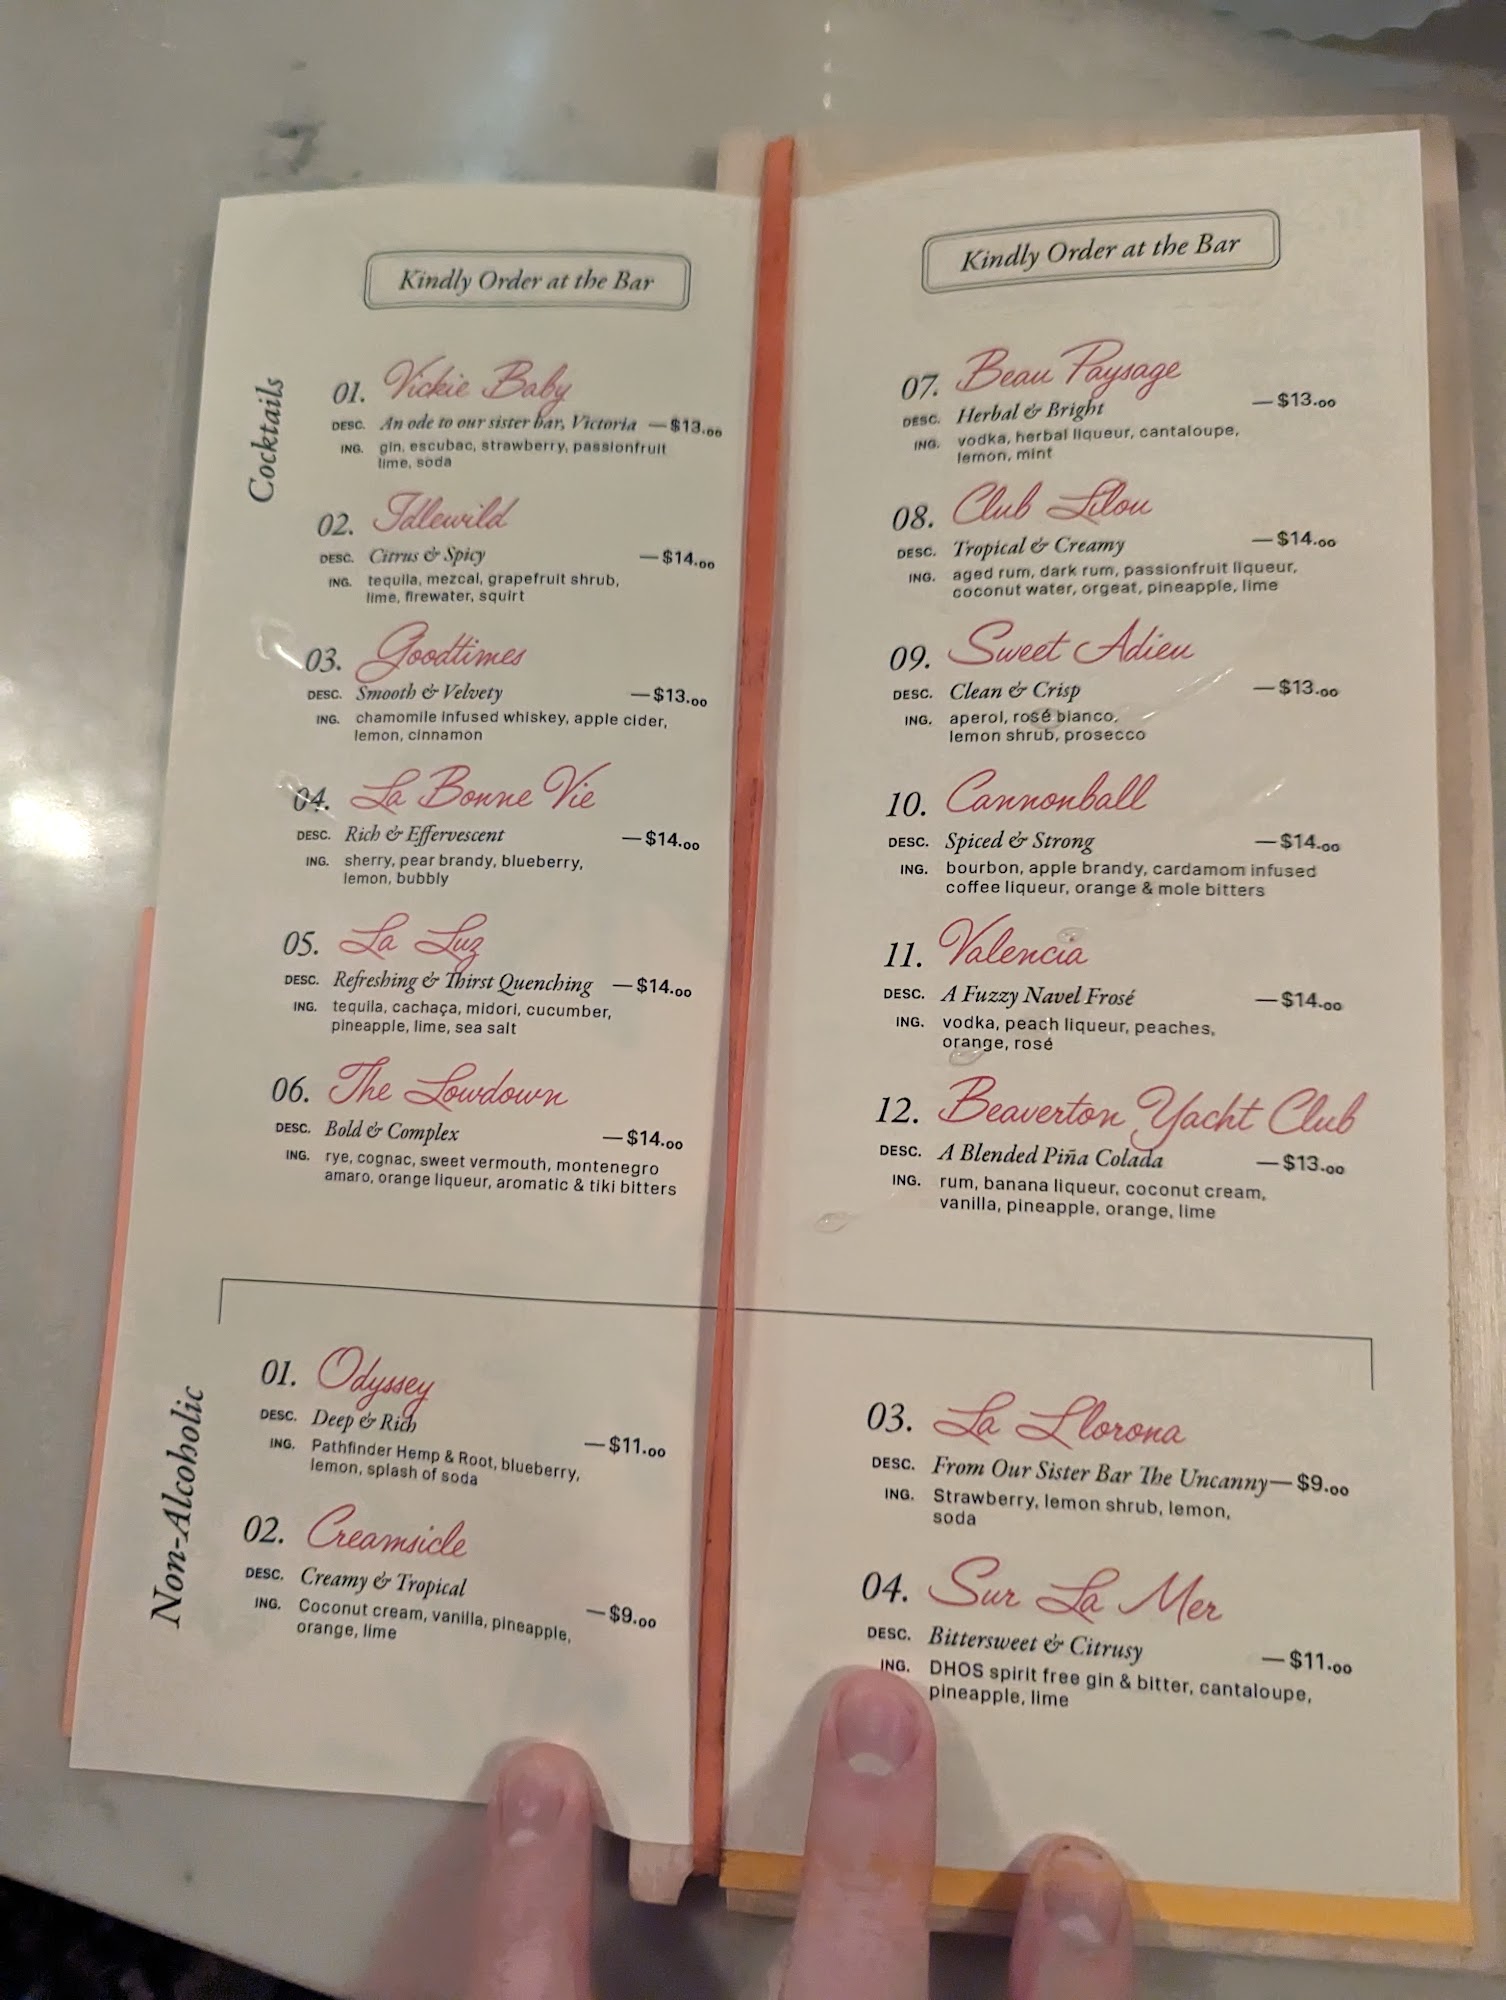 Kindly Order at the Bar
Cocktails
01. Vickie Baby
DESC. An ode to our sister bar, Victoria — $13.00
ING. gin, escubac, strawberry, passionfruit
lime, soda
02. Idlewild
DESC. Citrus & Spicy — $14.00
ING. tequila, mezcal, grapefruit shrub,
lime, firewater, squirt
03. Goodtimes
DESC. Smooth & Velvety — $13.00
ING. chamomile infused whiskey, apple cider,
lemon, cinnamon
04. La Bonne Vie
DESC. Rich & Effervescent — $14.00
ING. sherry, pear brandy, blueberry,
lemon, bubbly
05. La Luz
DESC. Refreshing & Thirst Quenching — $14.00
ING. tequila, cachaça, midori, cucumber,
pineapple, lime, sea salt
06. The Lowdown
DESC. Bold & Complex — $14.00
ING. rye, cognac, sweet vermouth, montenegro
amaro, orange liqueur, aromatic & tiki bitters
Non-Alcoholic
01. Odyssey
DESC. Deep & Rich — $11.00
ING. Pathfinder Hemp & Root, blueberry,
lemon, splash of soda
02. Creamsicle
DESC. Creamy & Tropical — $9.00
ING. Coconut cream, vanilla, pineapple,
orange, lime
Kindly Order at the Bar
07. Beau Paysage
DESC. Herbal & Bright — $13.00
ING. vodka, herbal liqueur, cantaloupe,
lemon, mint
08. Club Lilou
DESC. Tropical & Creamy — $14.00
ING. aged rum, dark rum, passionfruit liqueur,
coconut water, orgeat, pineapple, lime
09. Sweet Adieu
DESC. Clean & Crisp — $13.00
ING. aperol, rosé bianco,
lemon shrub, prosecco
10. Cannonball
DESC. Spiced & Strong — $14.00
ING. bourbon, apple brandy, cardamom infused
coffee liqueur, orange & mole bitters
11. Valencia
DESC. A Fuzzy Navel Frosé — $14.00
ING. vodka, peach liqueur, peaches,
orange, rosé
12. Beaverton Yacht Club
DESC. A Blended Piña Colada — $13.00
ING. rum, banana liqueur, coconut cream,
vanilla, pineapple, orange, lime
03. La Llorona
DESC. From Our Sister Bar The Uncanny — $9.00
ING. Strawberry, lemon shrub, lemon,
soda
04. Sur La Mer
DESC. Bittersweet & Citrusy — $11.00
ING. DHOS spirit free gin & bitter, cantaloupe,
pineapple, lime